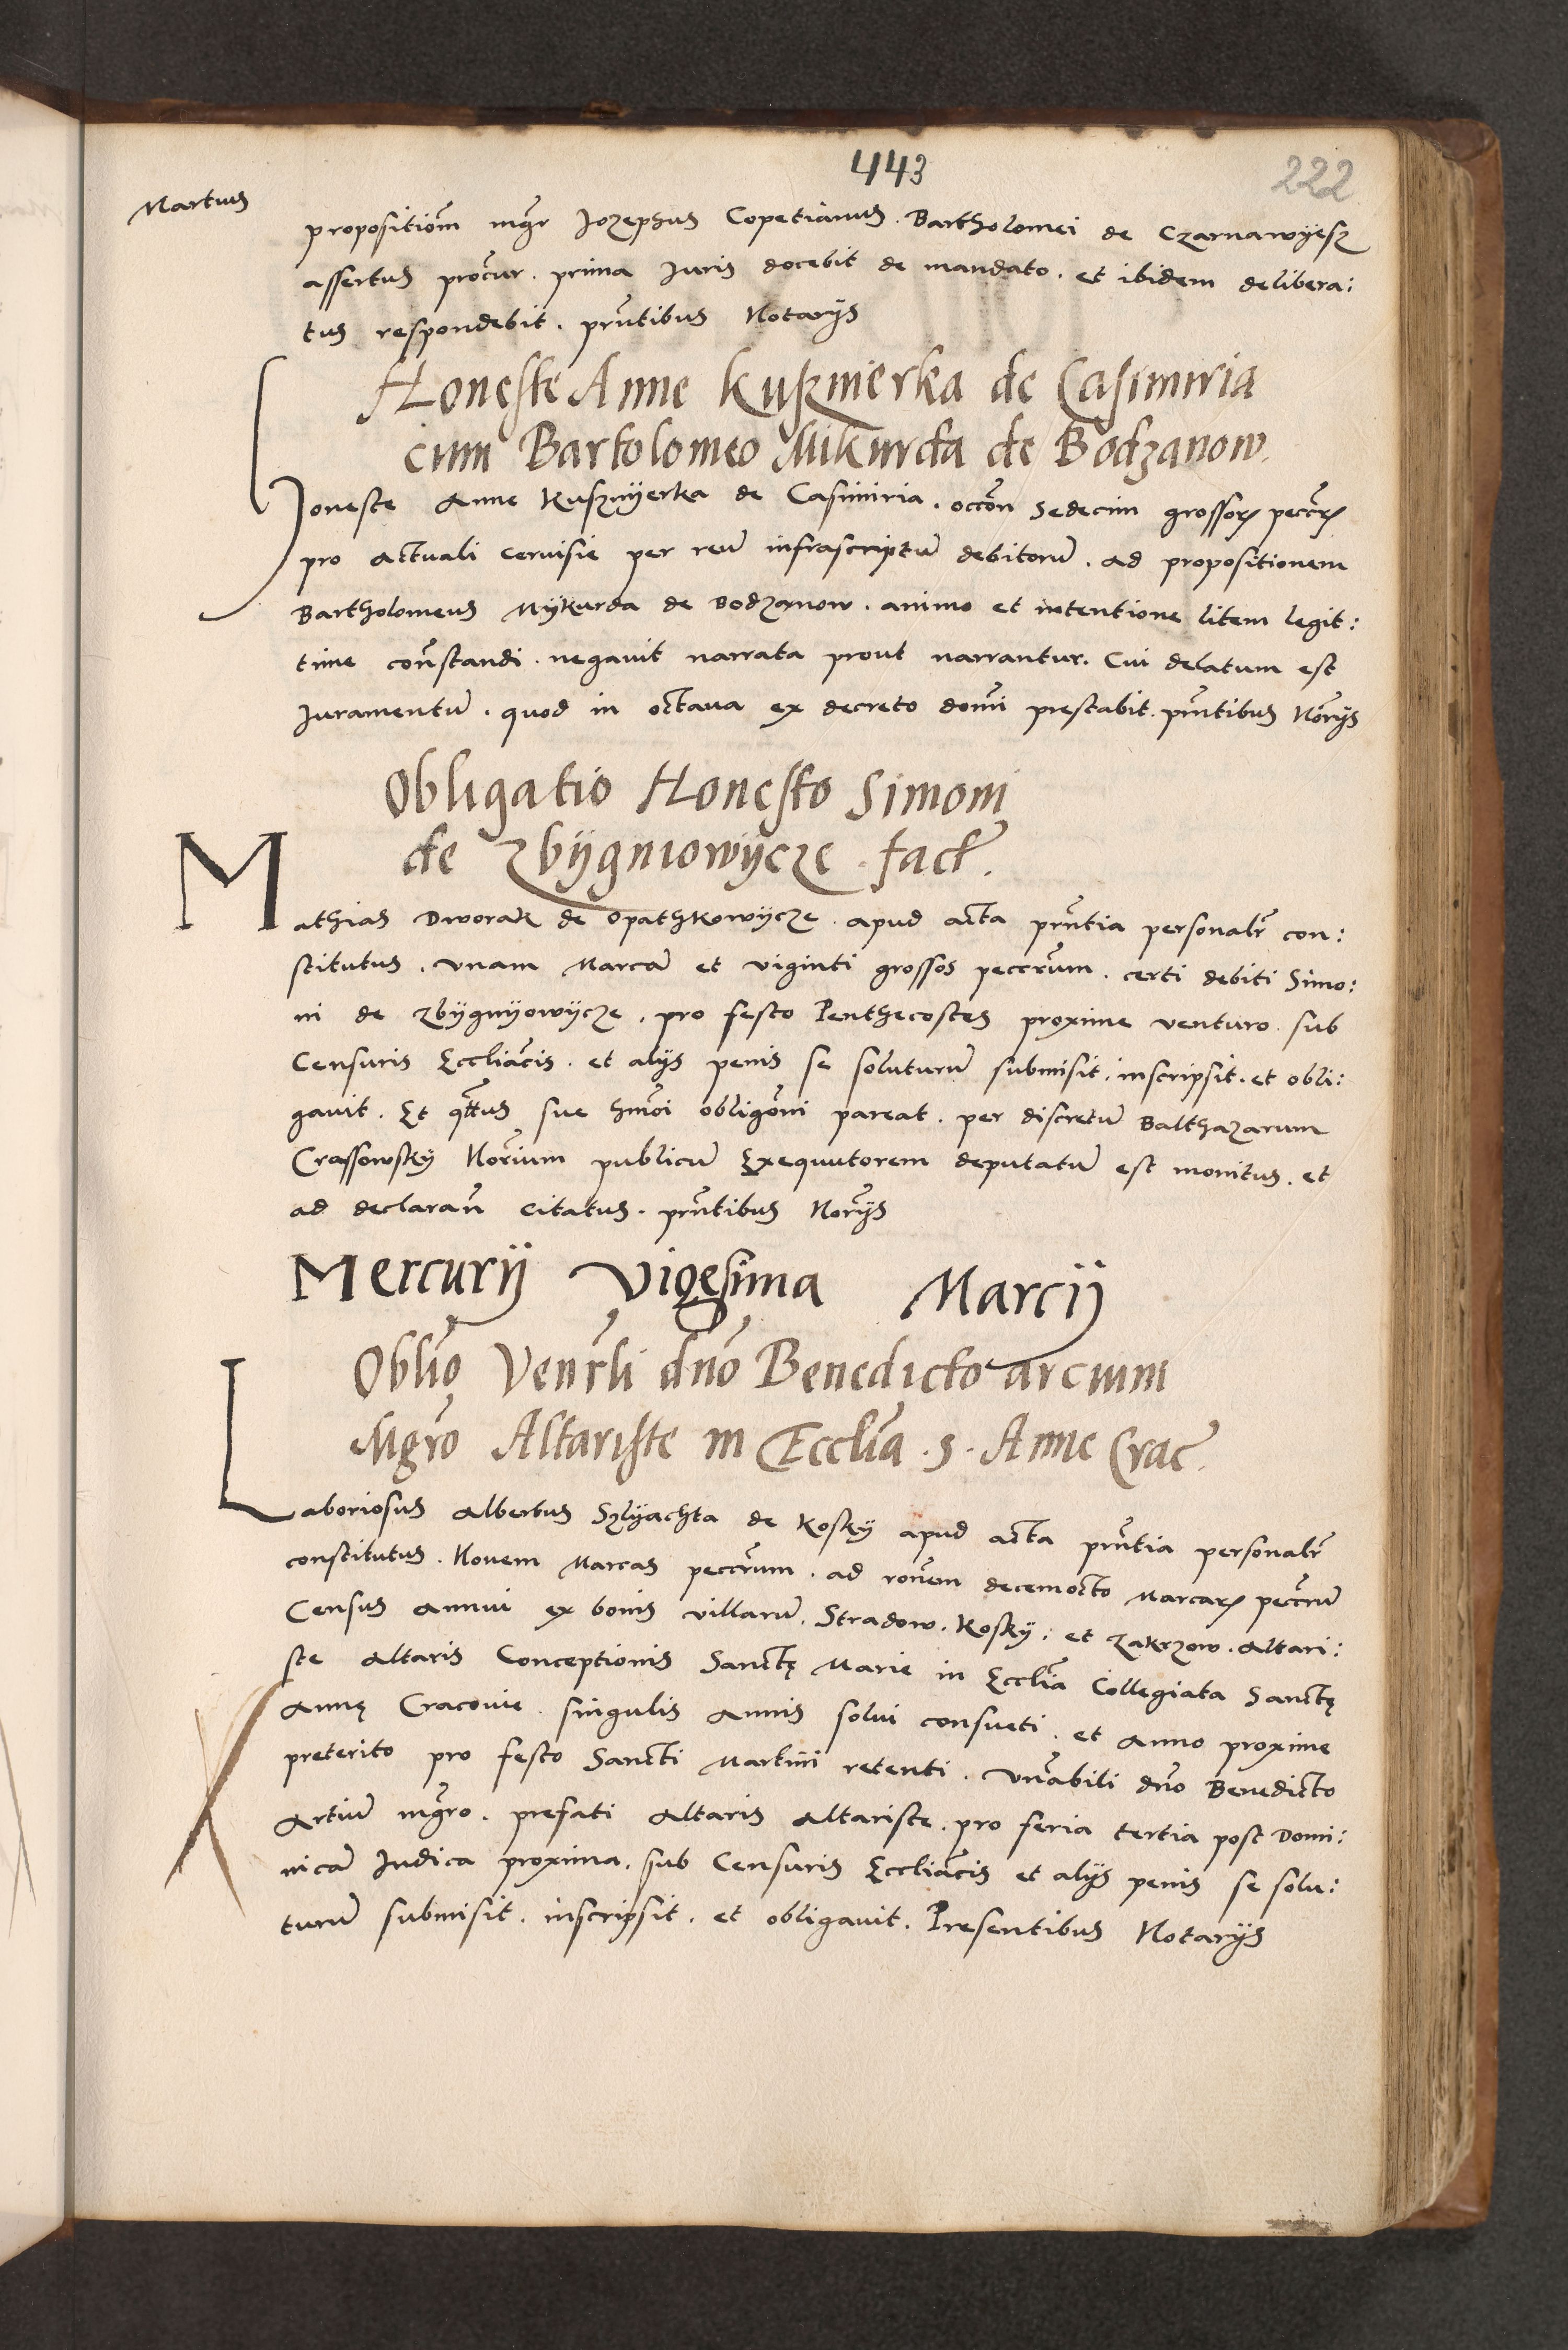 443
222
Martius
propositiōm mgr̄ Jozephus Copetianus . Bartholomei de Czarnawyesz
assertus procur̄ . prima Juris docebit de mandato . et ibidem delibera:
tus respondebit . prn̄tibus Notarijs
Honeste Anne Kuszmierka de Casimiria
cum Bartolomeo Mikurda de Bodzanow.
Honeste Anne Kusznyerka de Casimiria . occōn sedecim grossorꝝ peccr̄ꝝ
pro actuali ceruisie per reū infrascriptū debitorū . ad propositionem
Bartholomeus Mykurda de Bodzanow . animo et intentione litem legit:
time con̄standi . negauit narrata prout narrantur. Cui delatum est
Juramentū . quod in octaua ex decreto domī prestabit . prn̄tibus Nōrijs
Obligatio Honesto Simoni
de Zbijgniowijcze fact̄.
Mathias Dworak de Opathkowijcze . apud acta prn̄tia personalr̄ con:
stitutus . vnam Marcā et viginti grossos peccr̄um . certi debiti Simo:
ni de Zbijgnijowijcze . pro festo Penthecostes proxime venturo . sub
Censuris Eccliācis . et alijs penis se soluturū submisit . inscripsit . et obli:
gauit . Et q̄ttus sue hmōi obligōni pareat . per discretū Balthazarum
Crassowsky Nōrium publicū Exequutorem deputatū est monitus . et
ad declaran̄ citatus . prn̄tibus Nōrijs
Mercurij Vigesima Marcij
Obliō Venr̄li dnō Benedicto arcium
Mgrō Altariste in Eccliā . S . Anne Crac̄.
Laboriosus Albertus Szlyachta de Kosky apud acta prn̄tia personalr̄
constitutus . Nouem Marcas peccr̄um . ad rōnem decemocto Marcarꝝ peccr̄ū
Census annui ex bonis villarū . Stradow . Kosky . et Zakrzow . Altari:
ste Altaris Conceptionis Sanctę Marie in Eccliā Collegiata Sanctę
Annę Cracouie . singulis annis solui consueti . et Anno proxime
preterito pro festo Sancti Martini retenti . Vn̄abili dnō Benedicto
Artiū mgrō . prefati Altaris Altariste . pro feria tertia post Domi:
nicā Judica proxima . sub Censuris Eccliācis et alijs penis se solu:
turū submisit . inscripsit . et obligauit . Presentibus Notarijs